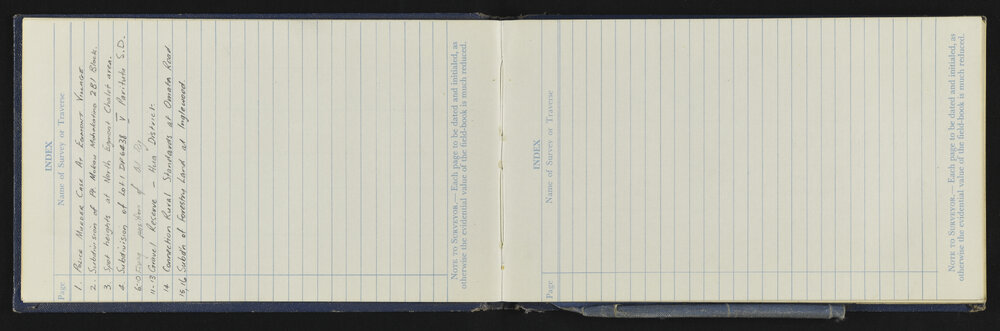 INDEX
Page Name of Survey or Traverse
1. Price Murder Case At Egmont Village
2. Subdivision of Pt. Mokau Mohakatino 2B1 Block.
3. Spot heights at North Egmont Chalet area.
4. Subdivision of Lot 1 DP 6438 V Paritutu S.D.
position of
11-13 Gravel Reserve - Huia District.
14 Connection Rural Standards at Omata Road
15,16 Subdn of Forestry Land at Inglewood.
NOTE TO SURVEYOR.— Each page to be dated and initialed, as
otherwise the evidential value of the field-book is much reduced.
INDEX
Page Name of Survey or Traverse
NOTE TO SURVEYOR.— Each page to be dated and initialed, as
otherwise the evidential value of the field-book is much reduced.